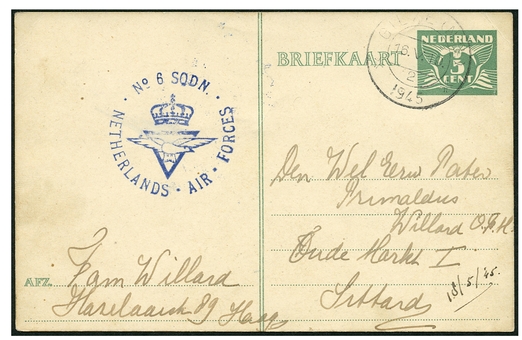 BRIEFKAART
NEDERLAND
5
CENT
16.V
1945
No 6 SQDN.
NETHERLANDS · AIR · FORCES
Den Wel Eerw Pater
Primaldus
Willard O.F.M.
Oude Markt I
Sittard
18/5/45.
AFZ.
Fam Willard
89 Haag